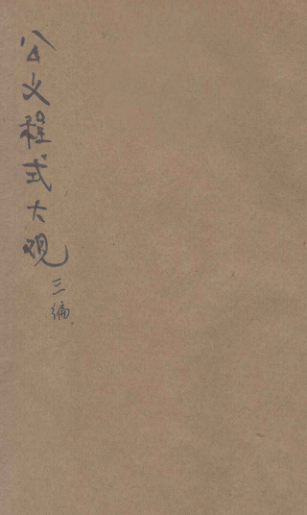 公文程式大观
三编